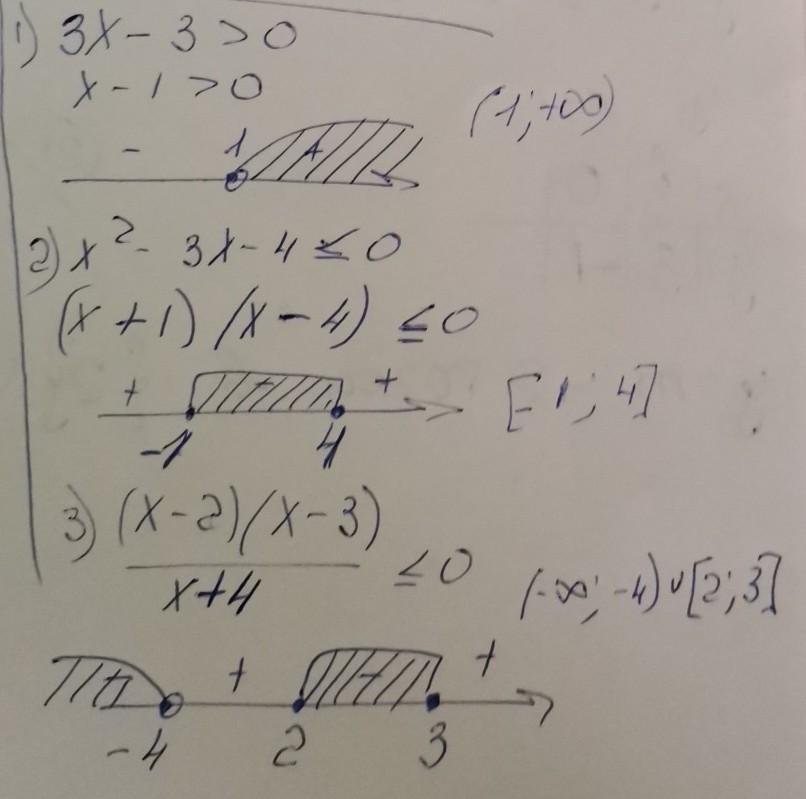 1) 3x - 3 > 0
x - 1 > 0
(1; +∞)
- 1 +
2) x² - 3x - 4 ≤ 0
(x + 1) (x - 4) ≤ 0
+ - +
-1 4
[-1; 4]
3) (x - 2)(x - 3)
x + 4
≤ 0
(-∞; -4) ∪ [2; 3]
- + - +
-4 2 3